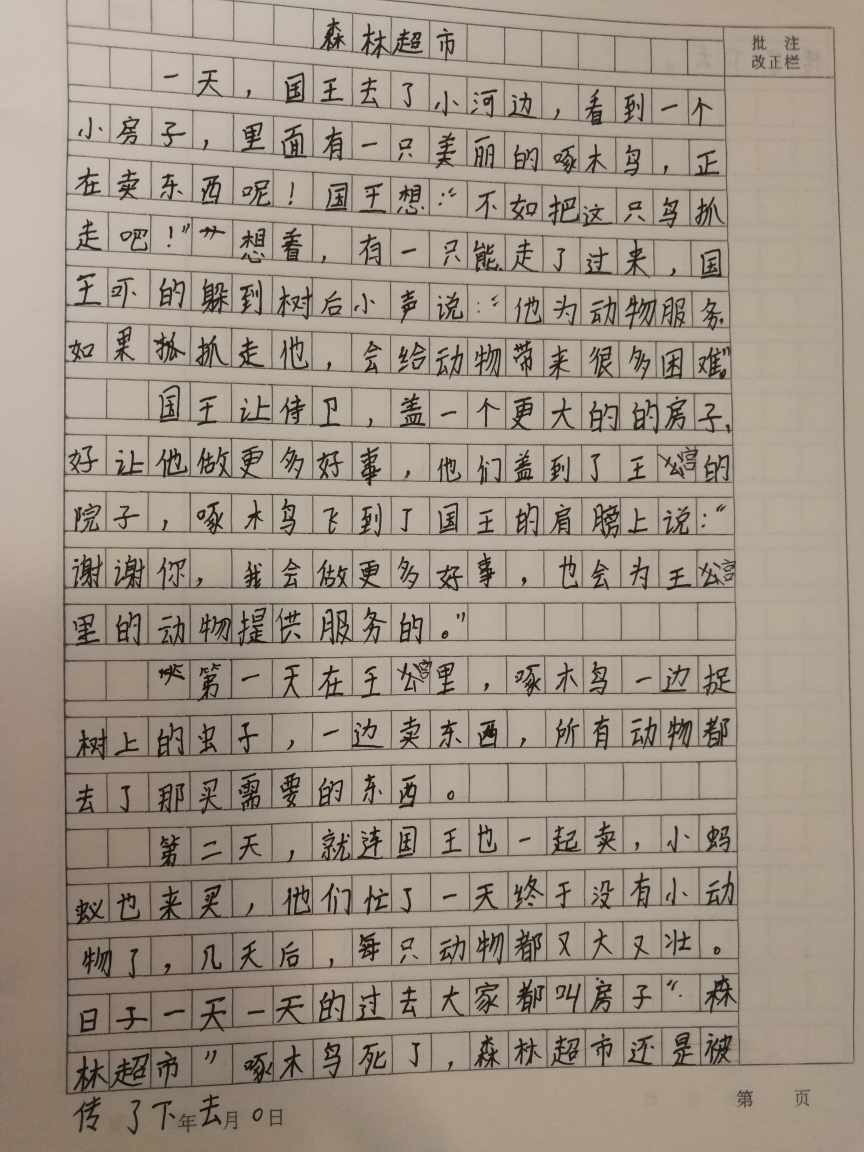 森林超市
批 注
改正栏
一天，国王去了小河边，看到一个
小房子，里面有一只美丽的啄木鸟，正
在卖东西呢！国王想：“不如把这只鸟抓
走吧！”想看，有一只能走了过来，国
王吓的躲到树后小声说：“他为动物服务，
如果抓抓走他，会给动物带来很多困难。”
国王让侍卫，盖一个更大的的房子，
好让他做更多好事，他们盖到了王宫的
院子，啄木鸟飞到了国王的肩膀上说：“
谢谢你，我会做更多好事，也会为王宫
里的动物提供服务的。”
第一天在王宫里，啄木鸟一边捉
树上的虫子，一边卖东西，所有动物都
去了那买需要的东西。
第二天，就连国王也一起卖，小蚂
蚁也来买，他们忙了一天终于没有小动
物了，几天后，每只动物都又大又壮。
日子一天一天的过去大家都叫房子“森
林超市”啄木鸟死了，森林超市还是被
传了下年去月。日
第 页